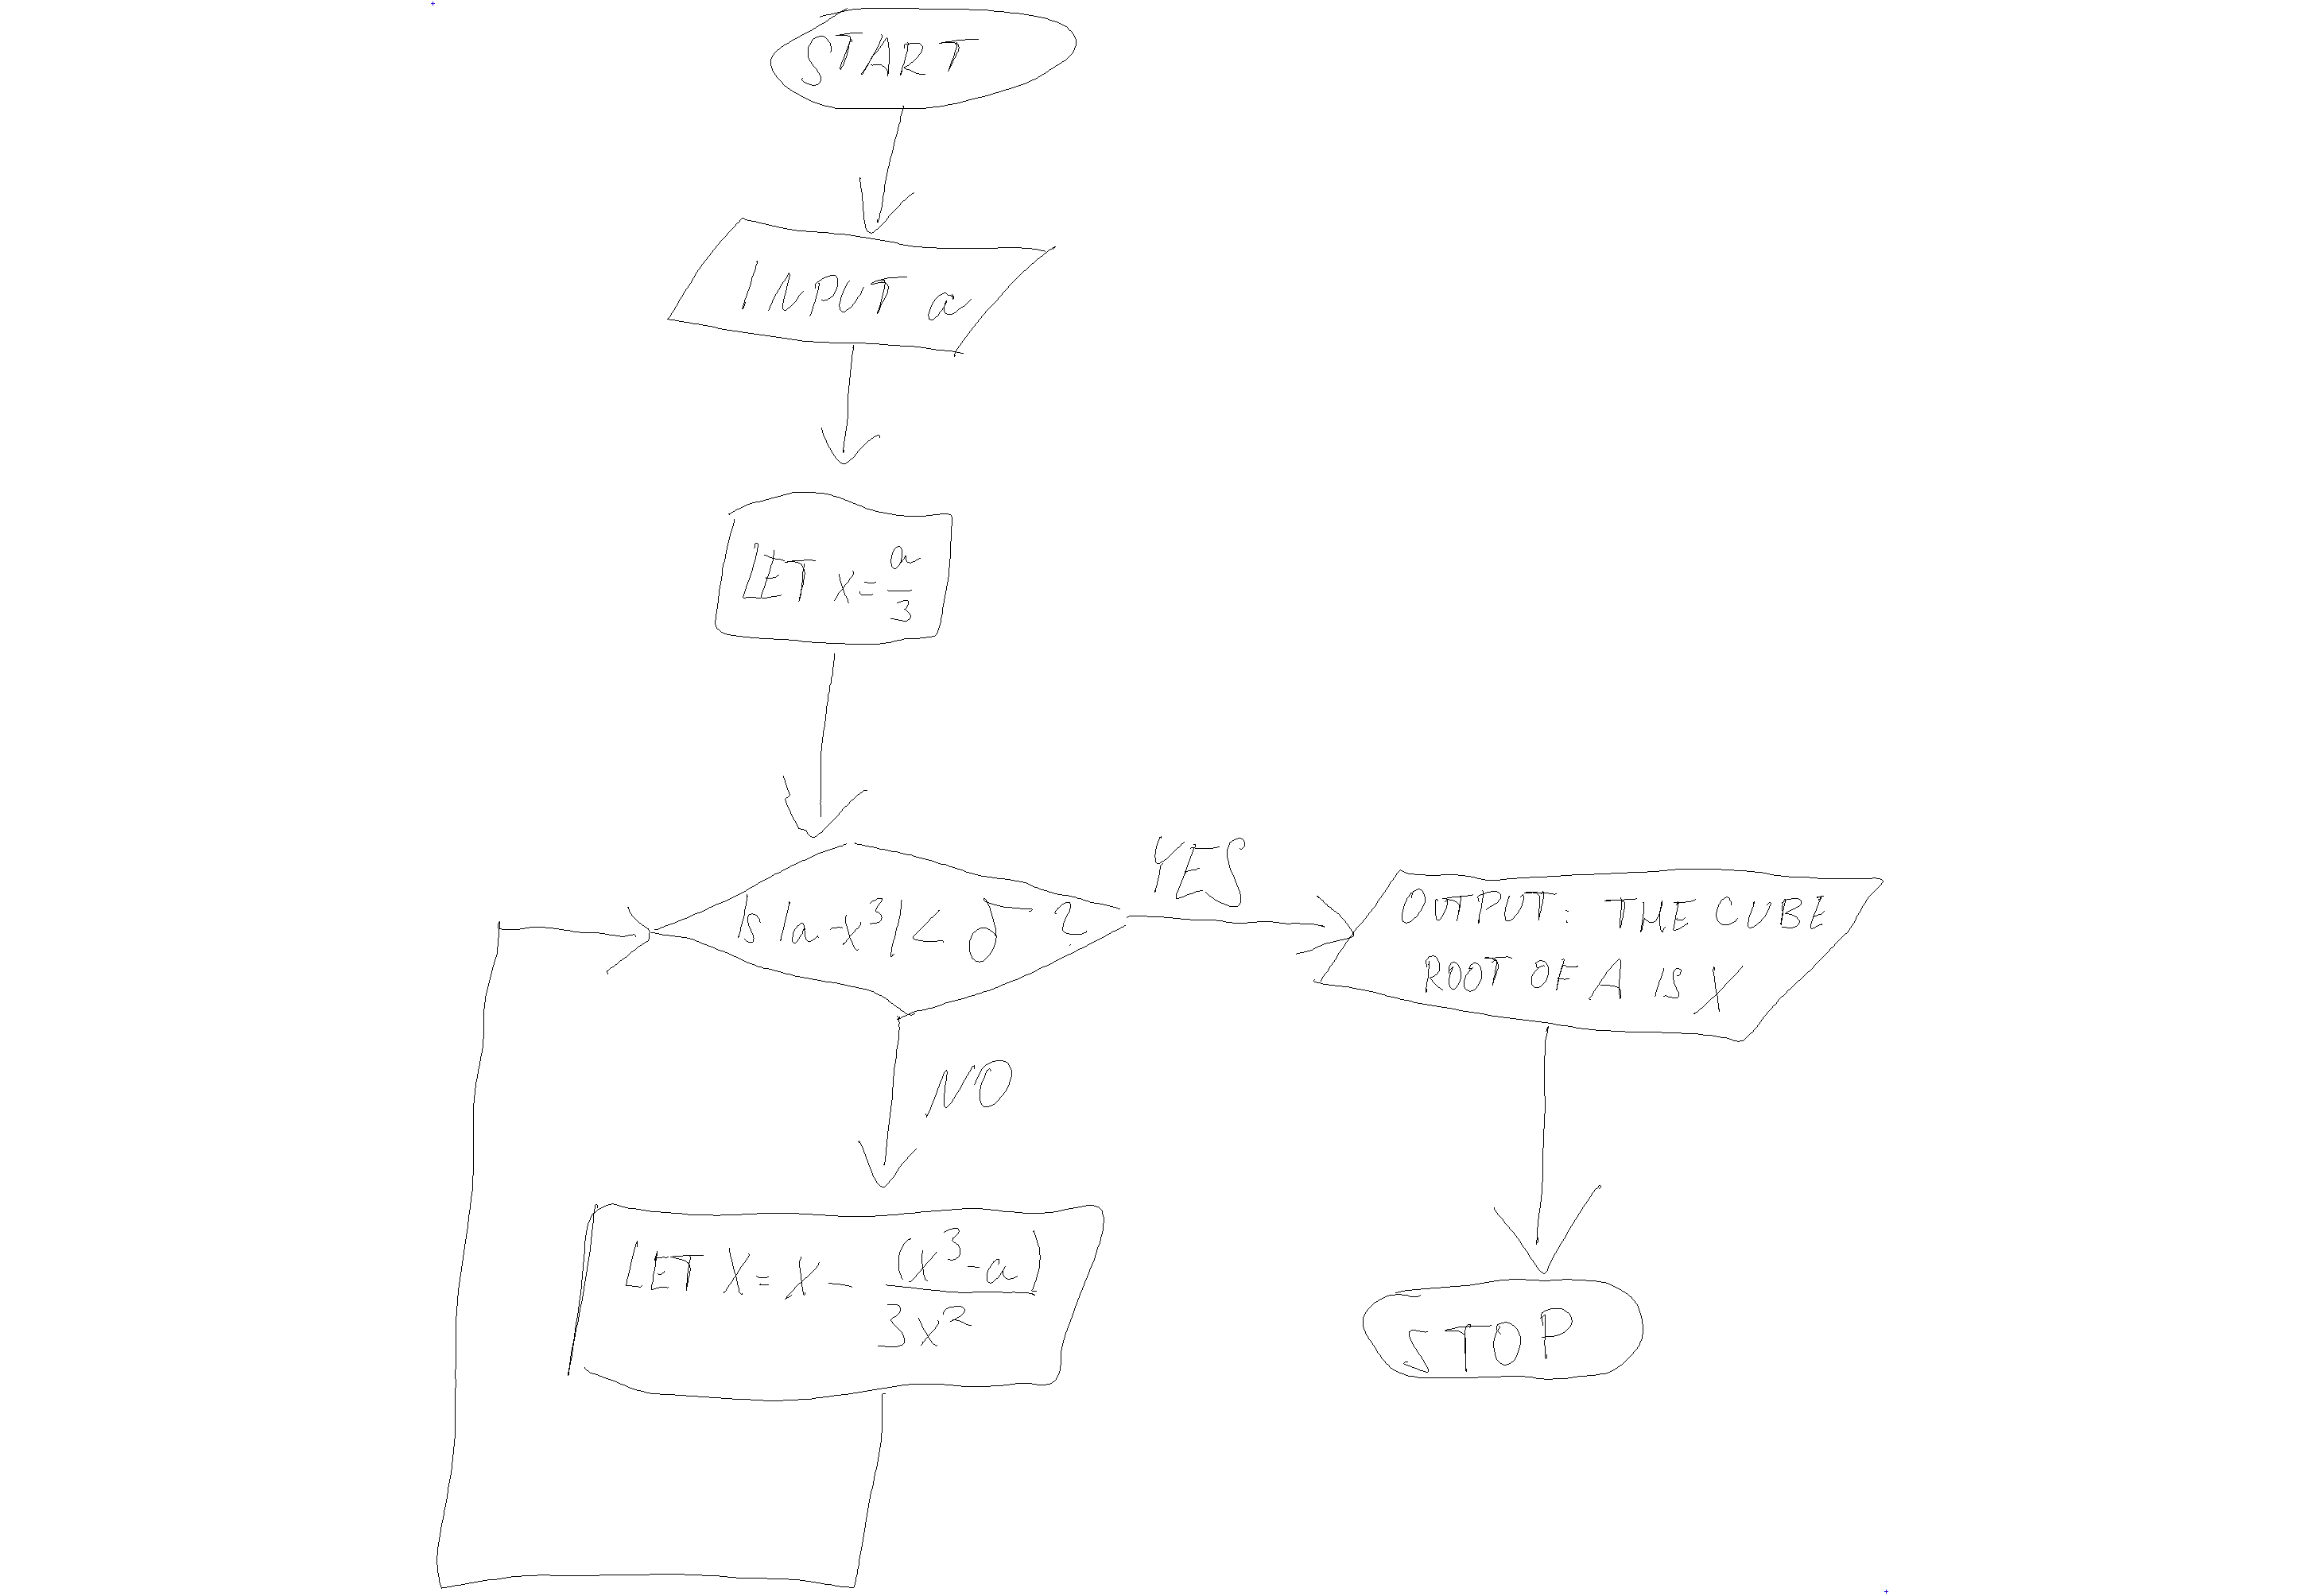 START
INPUT a
LET x = a/3
Is |a-x³| < δ ?
YES
OUTPUT: THE CUBE
ROOT OF A IS X
NO
LET X = X - (x³-a)/3x²
STOP